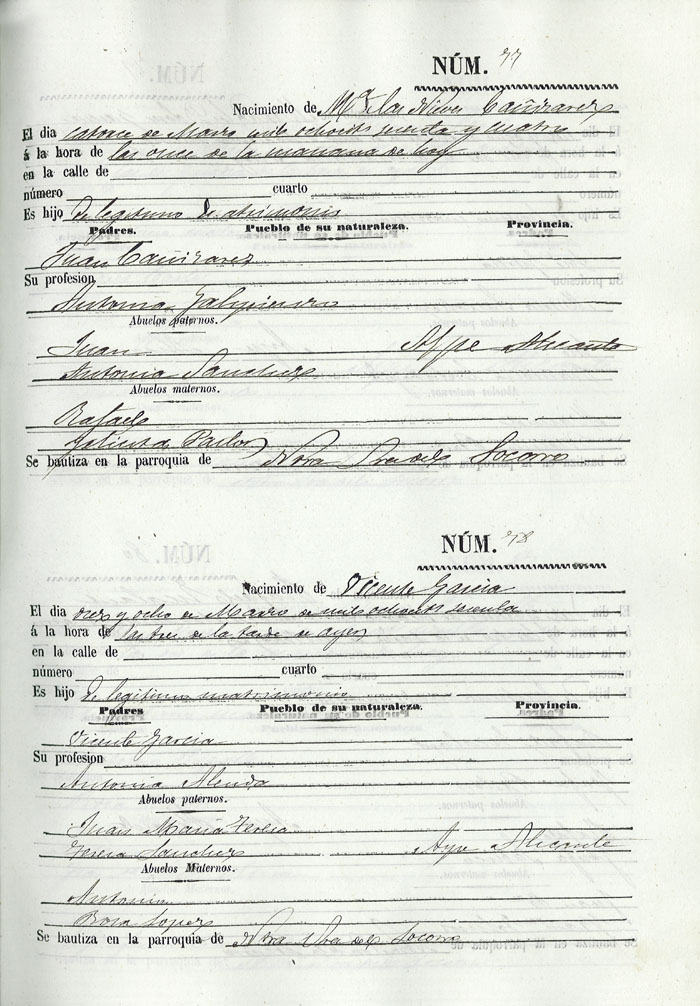 NÚM. 77
Nacimiento de Mª de las Nieves Cañizares
El dia catorce de Marzo mil ochocts sesenta y cuatro
á la hora de las once de la mañana de hoy
en la calle de
número cuarto
Es hijo de legitimo
Padres. Pueblo de su naturaleza. Provincia.
Juan Cañizares
Su profesion
Antonia
Abuelos paternos.
Juan Aspe Alicante
Antonia Sanchez
Abuelos maternos.
Rafael
Se bautiza en la parroquia de Ntra Sra del Socorro
NÚM. 78
Nacimiento de Vicente Garcia
El dia diez y ocho de Marzo de mil ochocts sesenta
á la hora de las tres de la tarde de ayer
en la calle de
número cuarto
Es hijo de legitimo matrimonio
Padres Pueblo de su naturaleza. Provincia.
Vicente Garcia
Su profesion
Antonia Alenda
Abuelos paternos.
Juan Maria
Teresa Sanchez Aspe Alicante
Abuelos Maternos.
Antonio
Rosa Lopez
Se bautiza en la parroquia de Ntra Sra del Socorro